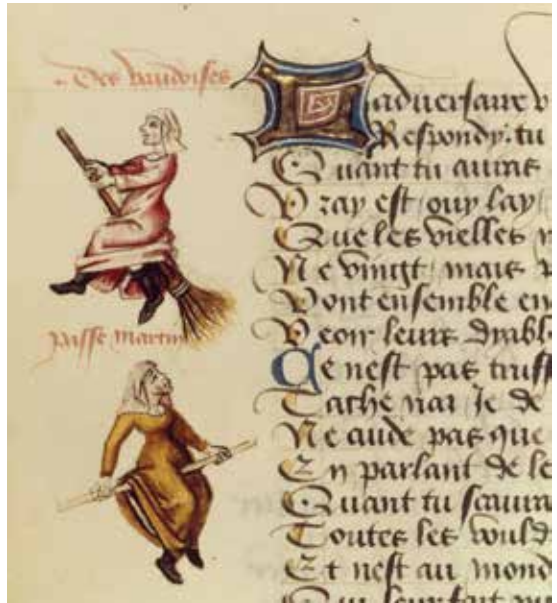 Des vaudoises
Passe Martin
Ladversaire v
Respondy tu
Quant tu auras
Vray est ouy lay
Que les vielles
Ne vingt mais p
Vont ensemble en
Veoir leurs dyabl
Ce nest pas truff
Je de
Ne cuide pas que
En parlant de le
Quant tu scaura
Toutes les vould
Et nest au mond
Qui leur fait